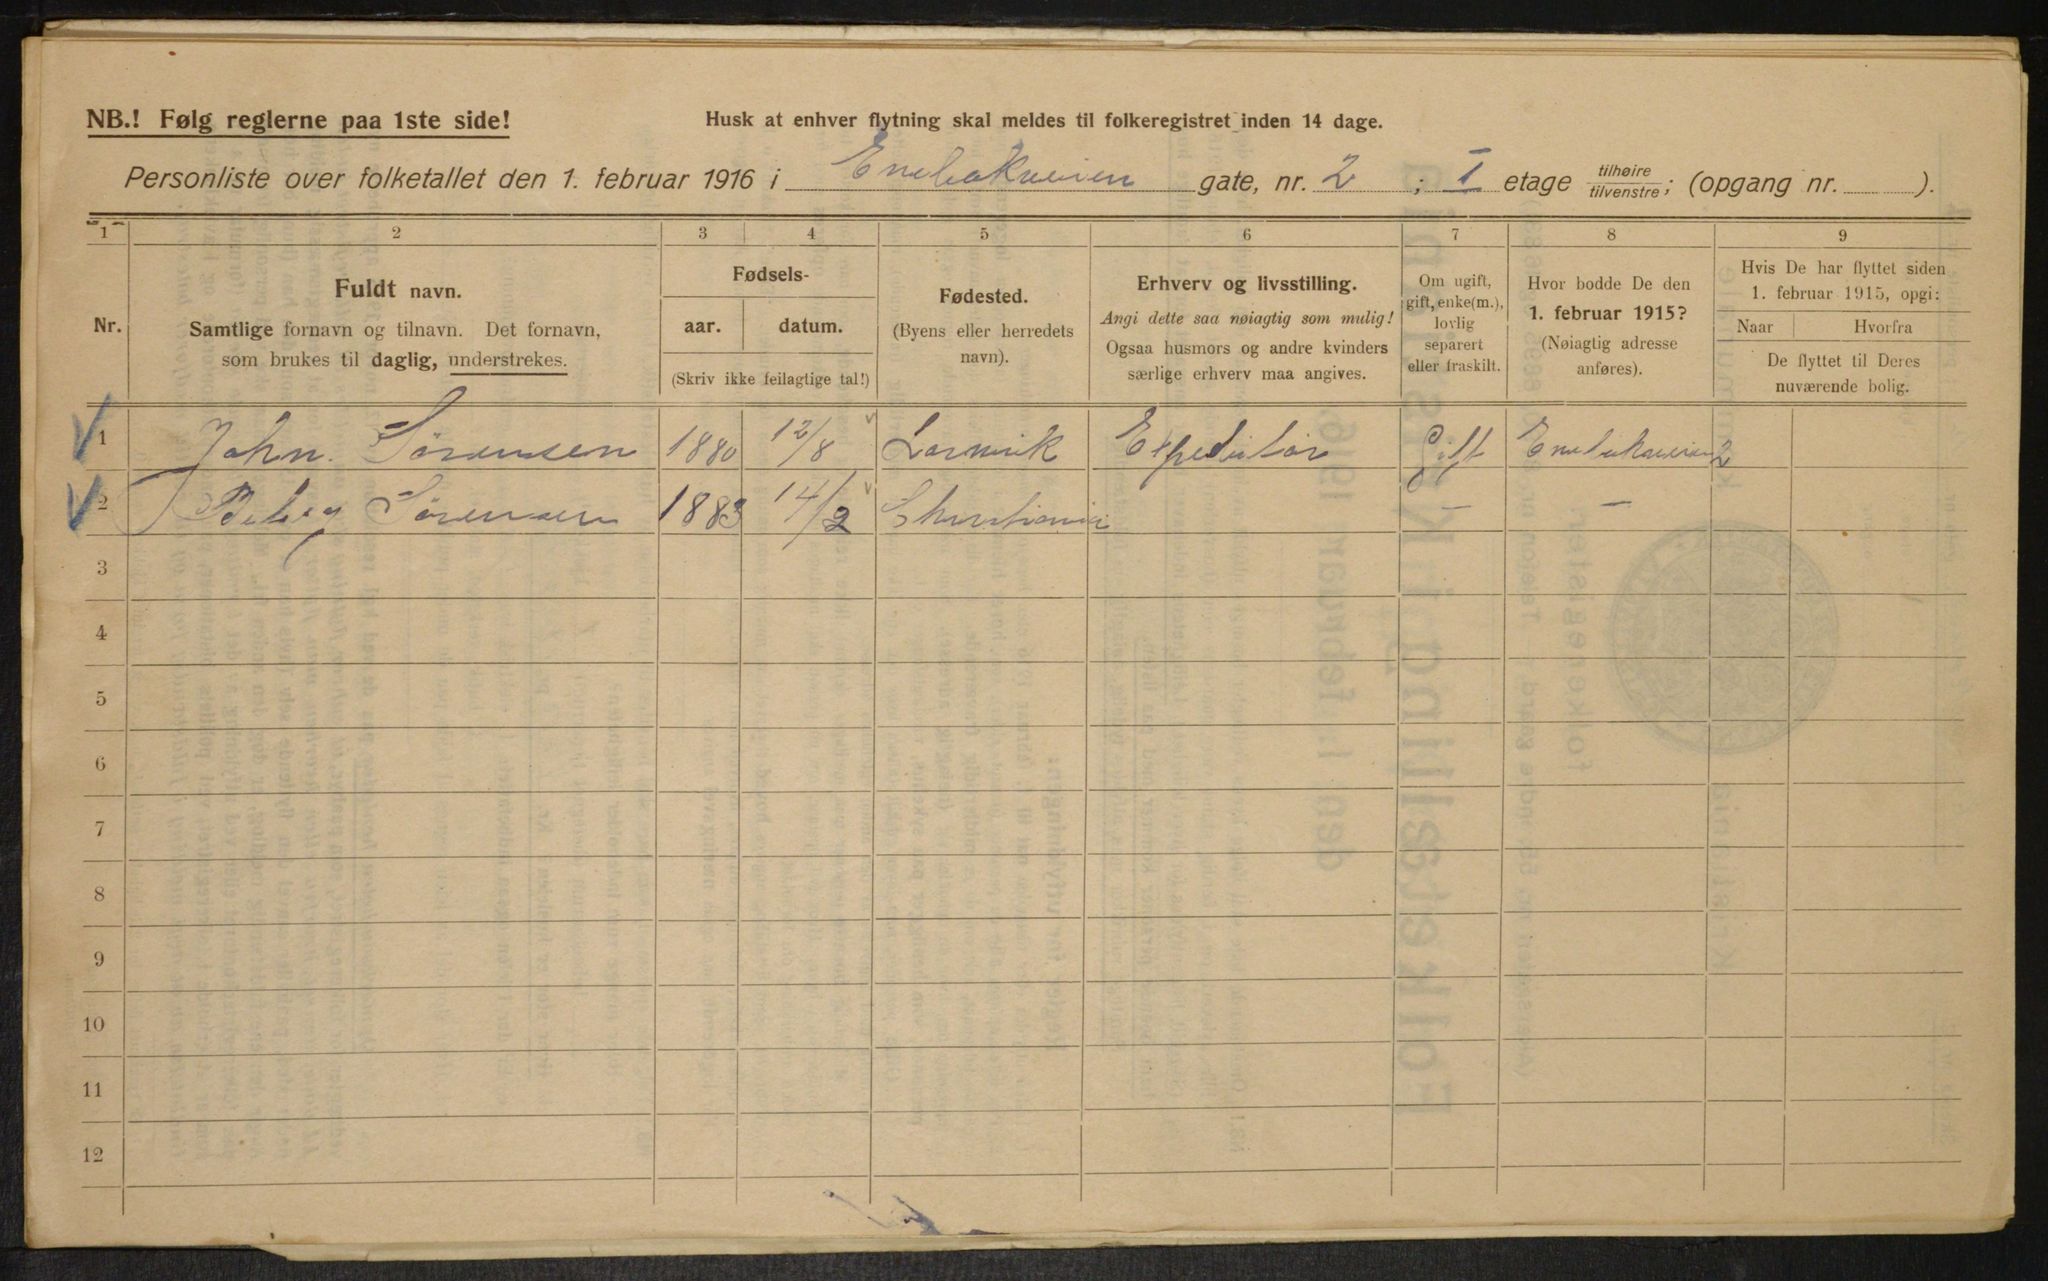 NB.! Følg reglerne paa 1ste side!
Husk at enhver flytning skal meldes til folkeregistret inden 14 dage.
Personliste over folketallet den 1. februar 1916 i Enebakveien gate, nr. 2 ; I etage tilhøire/tilvenstre; (opgang nr. ).
1 2 3 4 5 6 7 8 9
Nr.
Fuldt navn.
Samtlige fornavn og tilnavn. Det fornavn,
som brukes til daglig, understrekes.
Fødsels-
aar. datum.
(Skriv ikke feilagtige tal!)
Fødested.
(Byens eller herredets
navn).
Erhverv og livsstilling.
Angi dette saa nøiagtig som mulig!
Ogsaa husmors og andre kvinders
særlige erhverv maa angives.
Om ugift,
gift, enke(m.),
lovlig
separert
eller fraskilt.
Hvor bodde De den
1. februar 1915?
(Nøiagtig adresse
anføres).
Hvis De har flyttet siden
1. februar 1915, opgi:
Naar Hvorfra
De flyttet til Deres
nuværende bolig.
1 John. Sörensen 1880 12/8 Larvik Expeditör Gift Enebakveien 2
2 Sörensen 1883 14/2 Christiania — —
3
4
5
6
7
8
9
10
11
12